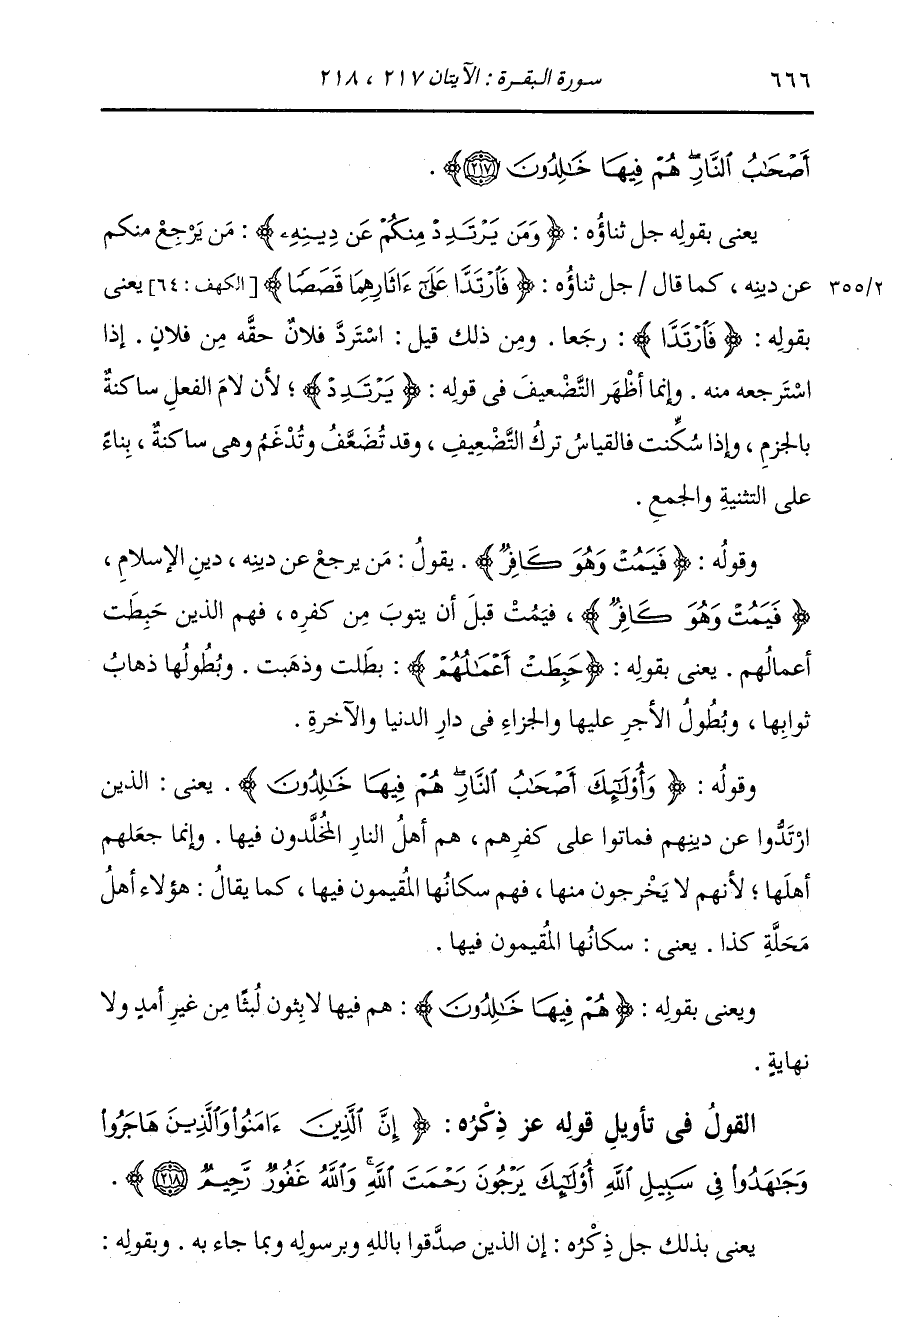 ٦٦٦ سورة البقرة : الآيتان ٢١٧ ، ٢١٨
أَصْحَٰبُ ٱلنَّارِۖ هُمْ فِيهَا خَٰلِدُونَ ﴿٢١٧﴾ ﴾ .
يعنى بقولِه جل ثناؤُه : ﴿ وَمَن يَرْتَدِدْ مِنكُمْ عَن دِينِهِۦ ﴾ : مَن يَرْجِعْ منكم
٣٥٥/٢ عن دينِه ، كما قال / جل ثناؤُه : ﴿ فَٱرْتَدَّا عَلَىٰٓ ءَاثَارِهِمَا قَصَصًا ﴾ [ الكهف : ٦٤] يعنى
بقولِه : ﴿ فَٱرْتَدَّا ﴾ : رجَعا . ومِن ذلك قيل : اسْتَردَّ فلانٌ حقَّه مِن فلانٍ . إذا
اسْتَرجعه منه . وإنما أظْهَر التَّضْعيفَ فى قولِه : ﴿ يَرْتَدِدْ ﴾ ؛ لأن لامَ الفعلِ ساكنةٌ
بالجزمِ ، وإذا سُكِّنت فالقياسُ تركُ التَّضْعِيفِ ، وقد تُضَعَّفُ وتُدْغَمُ وهى ساكنةٌ ، بِناءً
على التثنيةِ والجمعِ .
وقولُه : ﴿ فَيَمُتْ وَهُوَ كَافِرٌ ﴾ . يقولُ : مَن يرجعْ عن دينِه ، دينِ الإسلامِ ،
﴿ فَيَمُتْ وَهُوَ كَافِرٌ ﴾ ، فيَمُتْ قبلَ أن يتوبَ مِن كفرِه ، فهم الذين حَبِطَت
أعمالُهم . يعنى بقولِه : ﴿ حَبِطَتْ أَعْمَٰلُهُمْ ﴾ : بطَلت وذهَبت . وبُطُولُها ذهابُ
ثوابِها ، وبُطُولُ الأجرِ عليها والجزاءِ فى دارِ الدنيا والآخرةِ .
وقولُه : ﴿ وَأُوْلَٰٓئِكَ أَصْحَٰبُ ٱلنَّارِۖ هُمْ فِيهَا خَٰلِدُونَ ﴾ . يعنى : الذين
ارْتَدُّوا عن دينِهم فماتوا على كفرِهم ، هم أهلُ النارِ المُخَلَّدون فيها . وإنما جعَلهم
أهلَها ؛ لأنهم لا يَخْرجون منها ، فهم سكانُها المُقيمون فيها ، كما يقالُ : هؤلاء أهلُ
مَحَلَّةِ كذا . يعنى : سكانُها المُقيمون فيها .
ويعنى بقولِه : ﴿ هُمْ فِيهَا خَٰلِدُونَ ﴾ : هم فيها لابِثون لُبثًا مِن غيرِ أمدٍ ولا
نهايةٍ .
القولُ فى تأويلِ قولِه عز ذِكْرُه : ﴿ إِنَّ ٱلَّذِينَ ءَامَنُوا۟ وَٱلَّذِينَ هَاجَرُوا۟
وَجَٰهَدُوا۟ فِى سَبِيلِ ٱللَّهِ أُوْلَٰٓئِكَ يَرْجُونَ رَحْمَتَ ٱللَّهِۚ وَٱللَّهُ غَفُورٌ رَّحِيمٌ ﴿٢١٨﴾ ﴾ .
يعنى بذلك جل ذِكْرُه : إن الذين صدَّقوا باللهِ وبرسولِه وبما جاء به . وبقولِه :